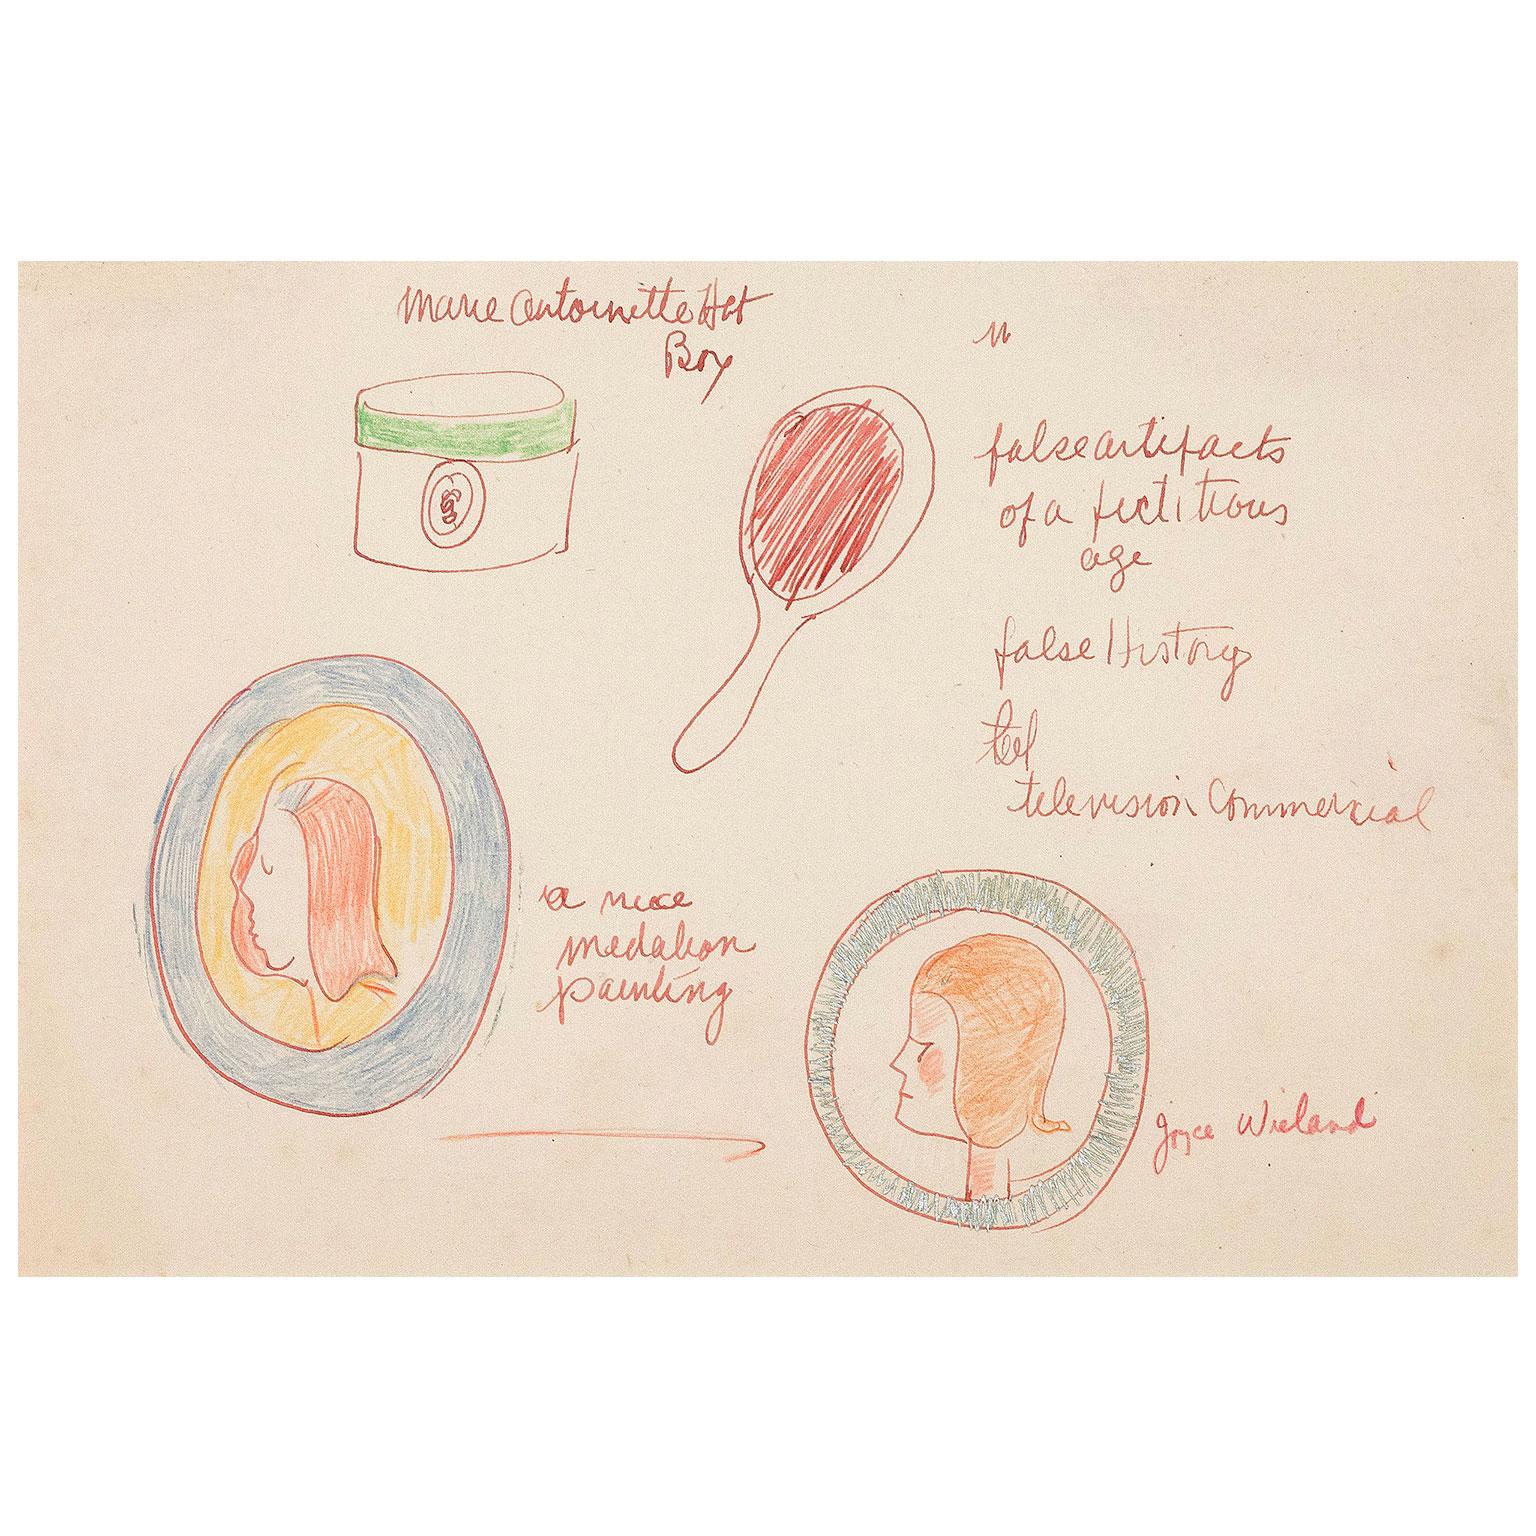 Marie Antoinette Hat
Box
false artifacts
of a fictitious
age
false History
tel
television Commercial
a nice
medalion
painting
Joyce Wieland